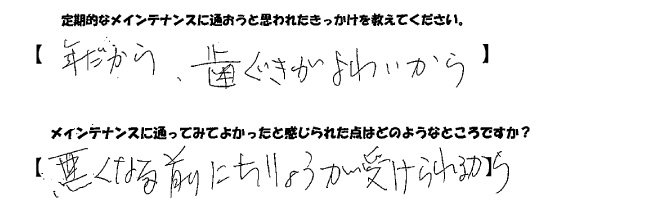 定期的なメインテナンスに通おうと思われたきっかけを教えてください。
【 年だから、歯ぐきがよわいから 】
メインテナンスに通ってみてよかったと感じられた点はどのようなところですか?
【悪くなる前にちりょうが受けられるから】